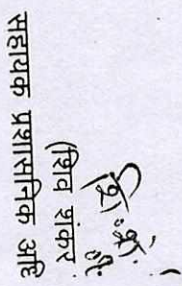 (शिव शंकर
सहायक प्रशासनिक अधि